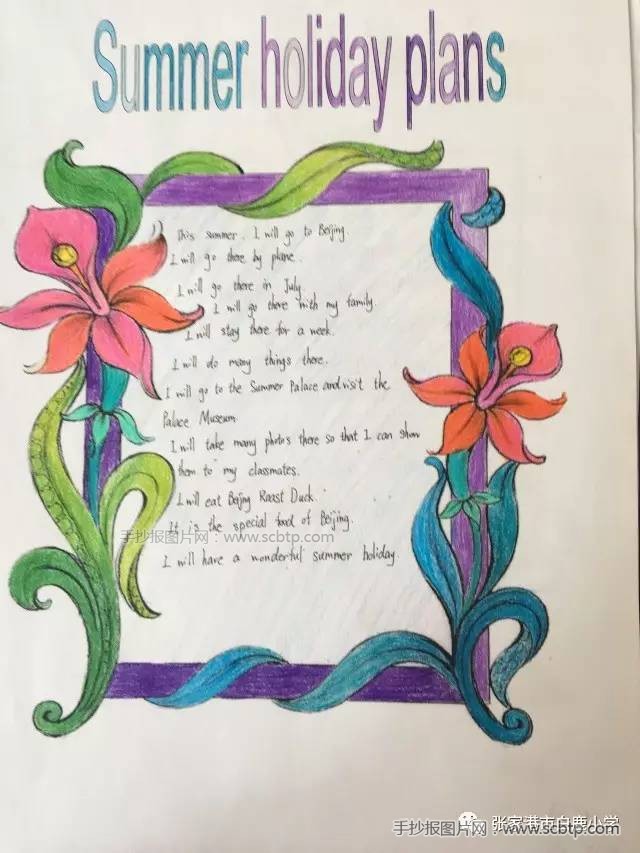 Summer holiday plans
This summer, I will go to Beijing.
I will go there by plane.
I will go there in July.
I will go there with my family.
I will stay there for a week.
I will do many things there.
I will go to the Summer Palace and visit the
Palace Museum
I will take many photos there so that I can show
them to my classmates.
I will eat Beijing Roast Duck.
It is the special food of Beijing.
手抄报图片网：www.scbtp.com
I will have a wonderful summer holiday.
张家港市白鹿小学
手抄报图片网：www.scbtp.com